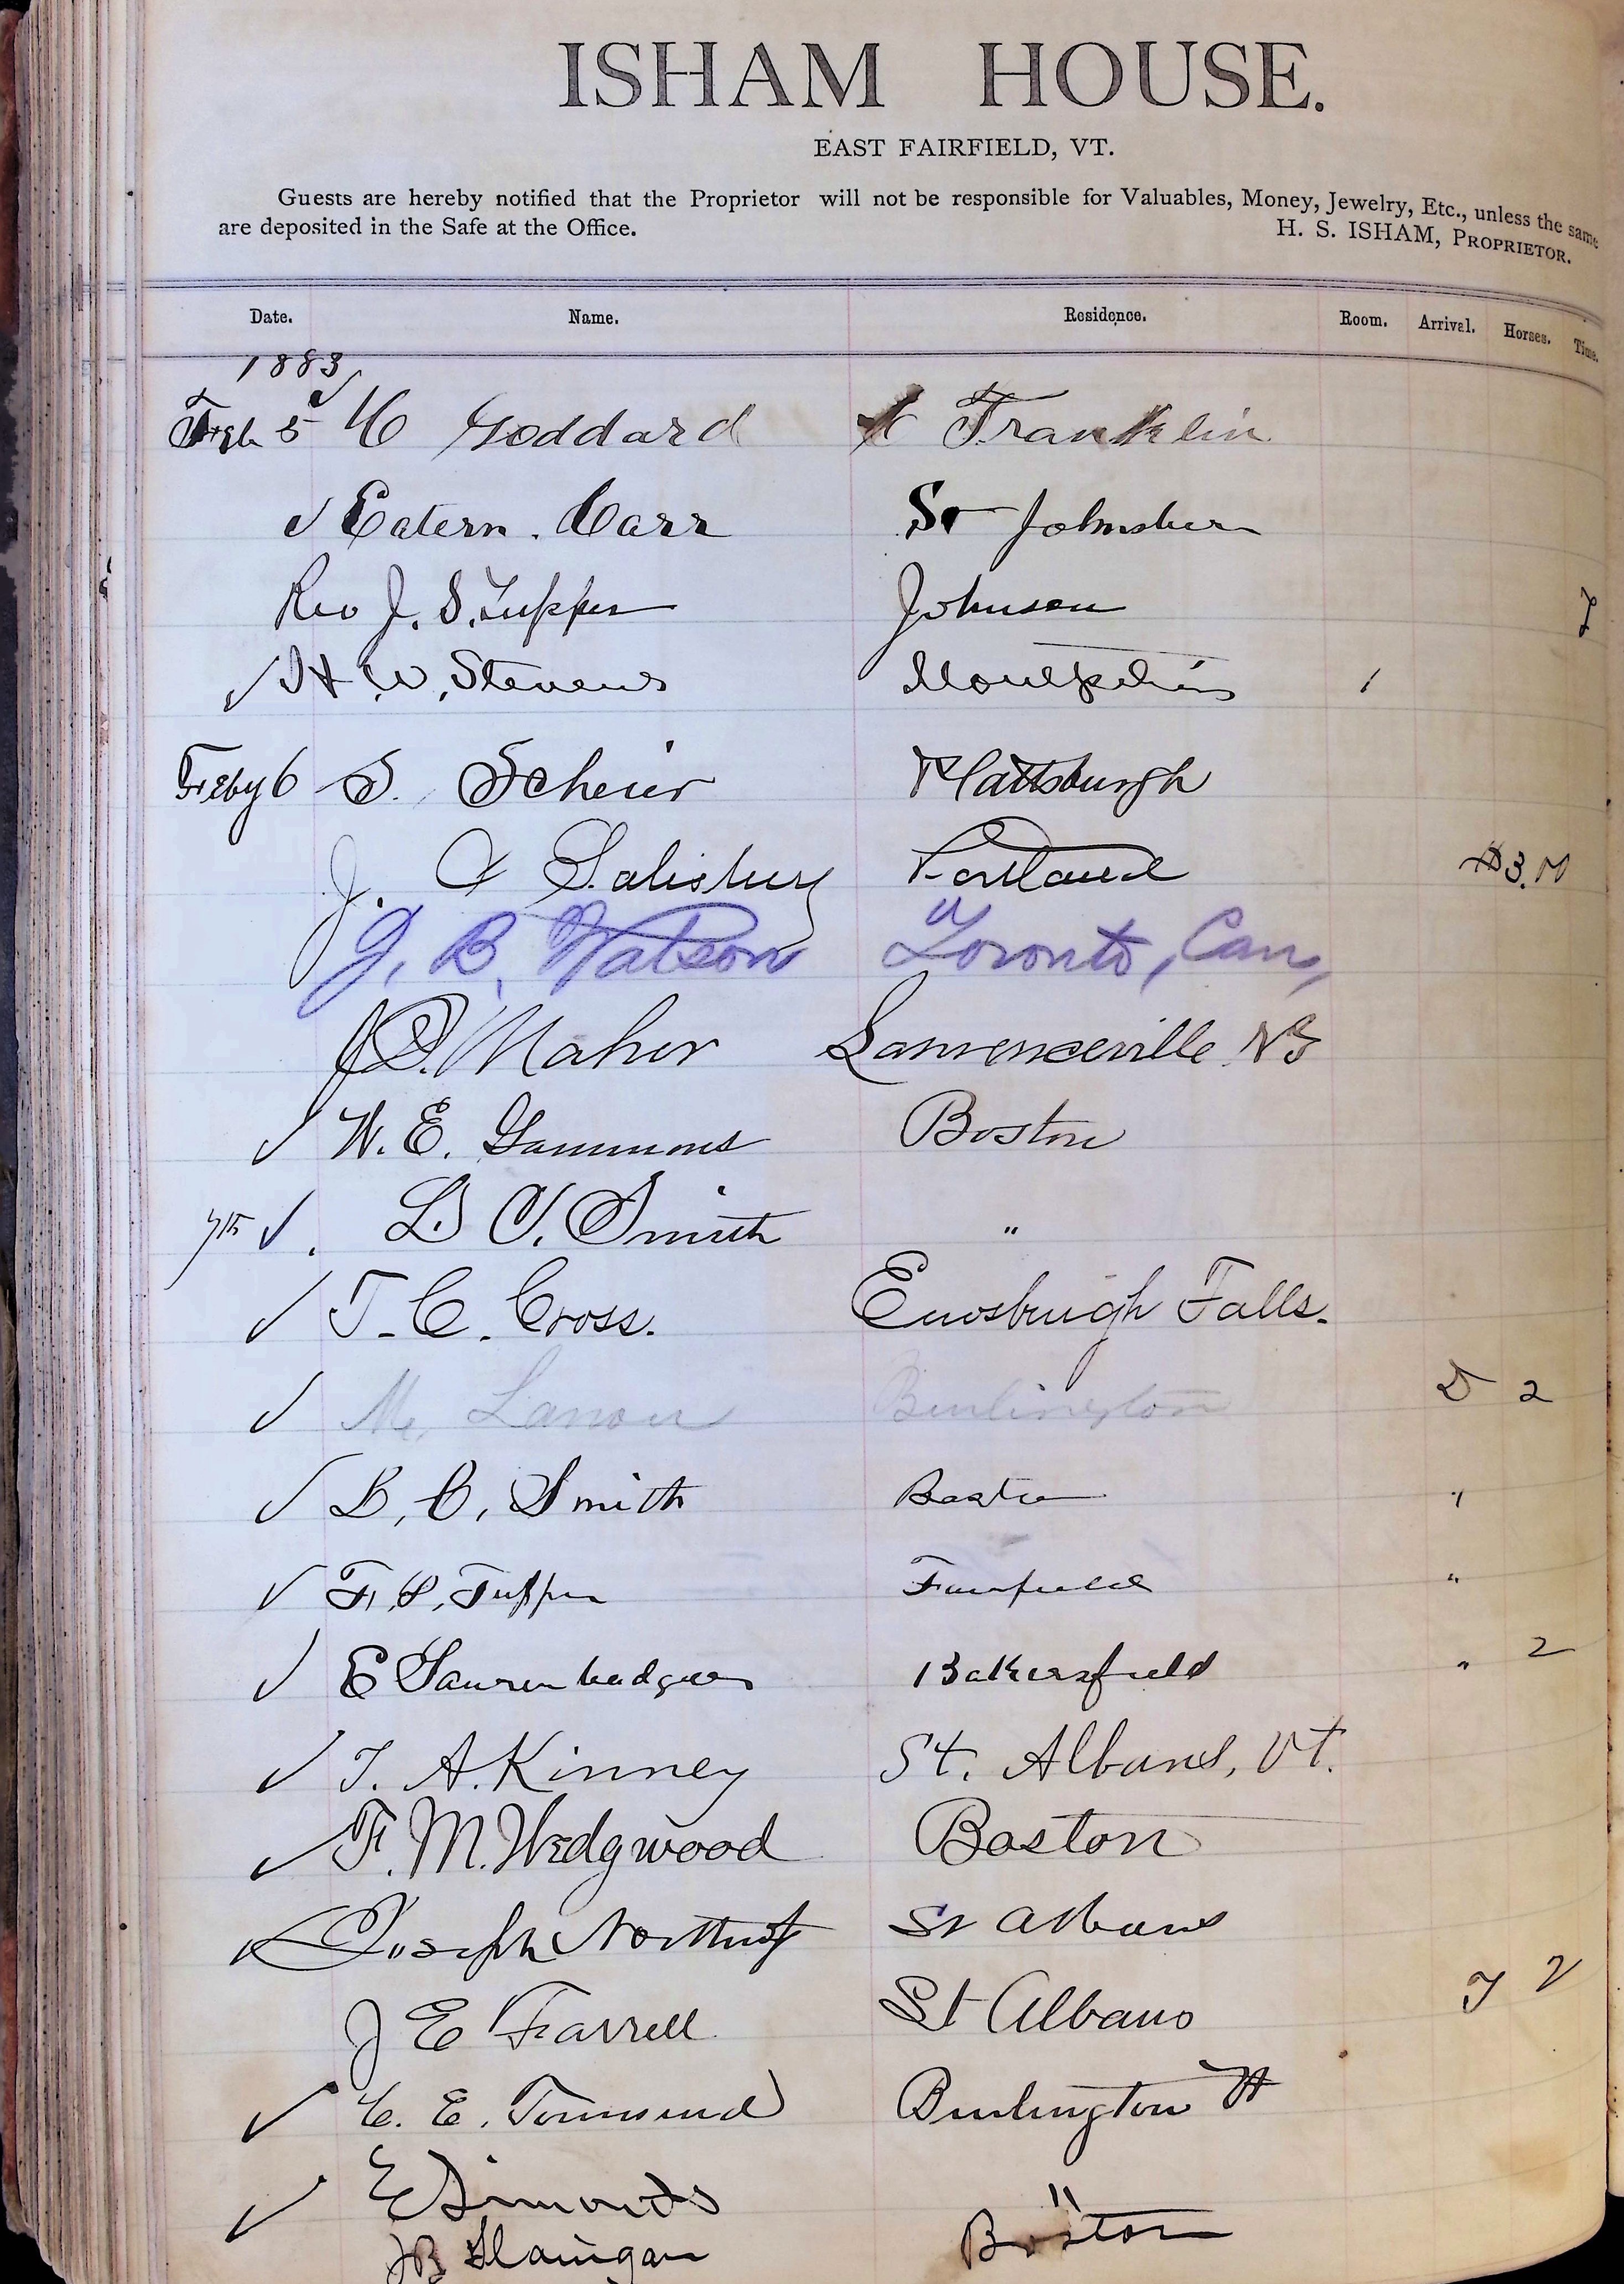 ISHAM HOUSE.
EAST FAIRFIELD, VT.
Guests are hereby notified that the Proprietor will not be responsible for Valuables, Money, Jewelry, Etc., unless the same
are deposited in the Safe at the Office. H. S. ISHAM, PROPRIETOR.
Date. Name. Residence. Room. Arrival. Horses. Time.
1883
Feb 5 ✓ C Goddard Franklin
✓ Eatern. Carr St Johnsbury
Rev J. S. Tupper Johnson
✓ H. W. Stevens Montpelier 1
Feby 6 S. Scheier Plattsburgh
J. Salisbury Portland $3.00
J. B. Watson Toronto, Can,
J. D. Maher Lawrenceville NY
✓ W. E. Gammons Boston
7th ✓ L. C. Smith "
✓ T. C. Cross. Enosburgh Falls.
✓ M. Burlington D 2
✓ L. C. Smith Boston "
✓ F. S. Tupper Fairfield "
✓ E Bakersfield " 2
✓ T. A. Kinney St. Albans, Vt.
✓ F. M. Wedgwood Boston
✓ Joseph Northrop St Albans
J E Farrell St Albans
✓ C. E. Townsend Burlington Vt
✓ E Simonds "
JB Flanigan Boston